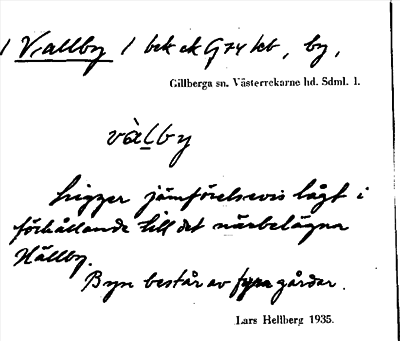 Vallby
by,
Gillberga sn. Västerrekarne hd. Sdml. l.
vàlby
Ligger jämförelsevis lågt i
förhållande till det närbelägna
Hällby.
Byn består av fyra gårdar.
Lars Hellberg 1935.